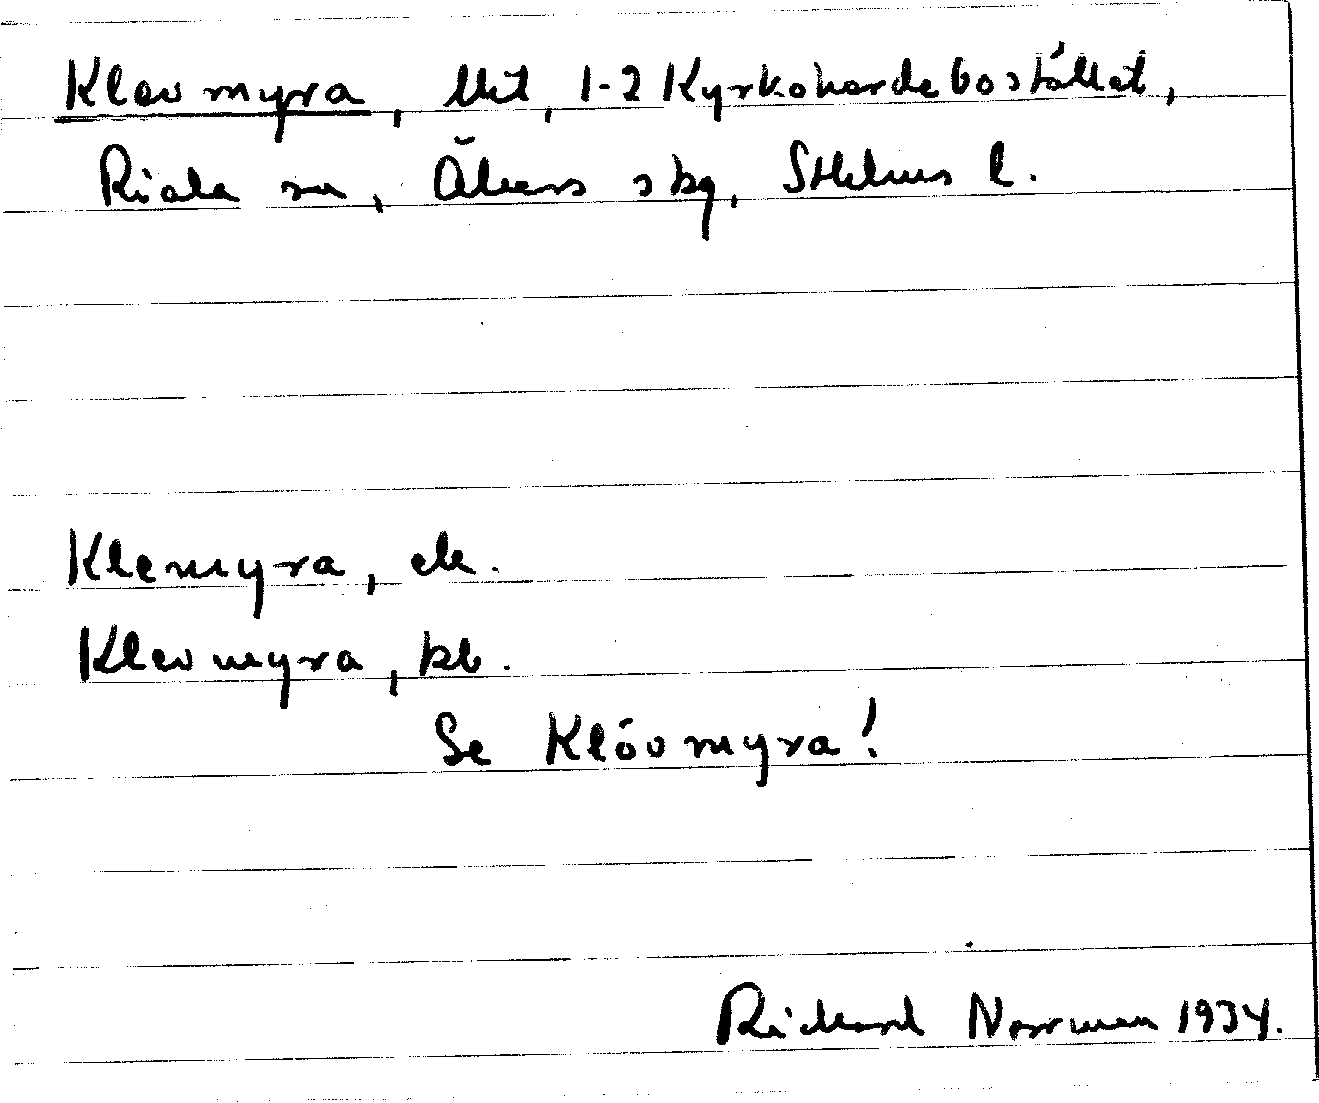 Klevmyra, Utt, 1-2 Kyrkoherdebostället,
Riala sn, Åkers skg, Sthlms l.
Klemyra, ek.
Klevmyra, kb.
Se Klövmyra!
Rickard Norrman 1934.